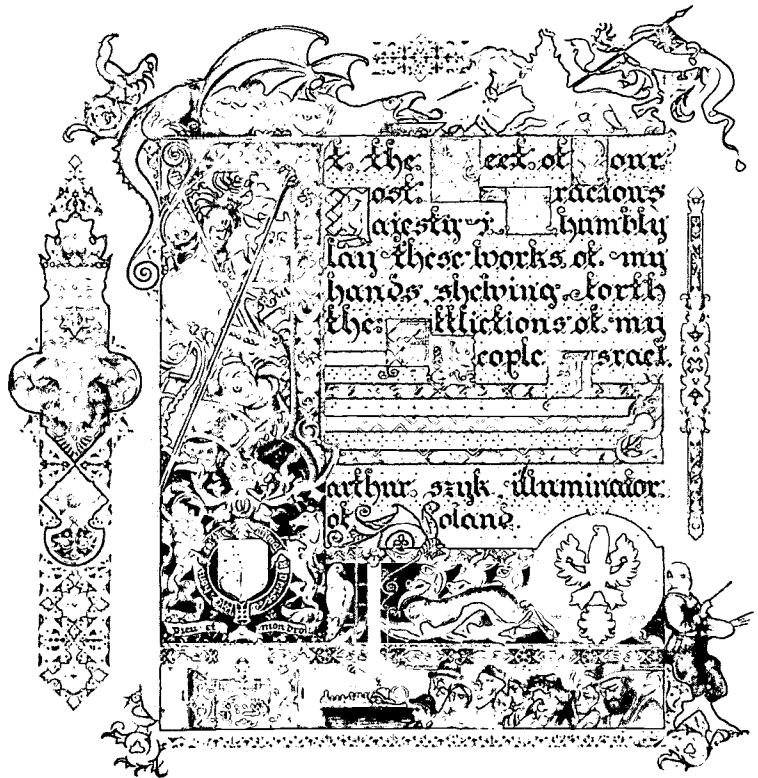 At the Feet of Your
Most Gracious
Majesty I humbly
lay these works of my
hands, shewing forth
the Afflictions of my
People Israel.
arthur szyk, illuminator
of Poland.
Dieu et mon droit